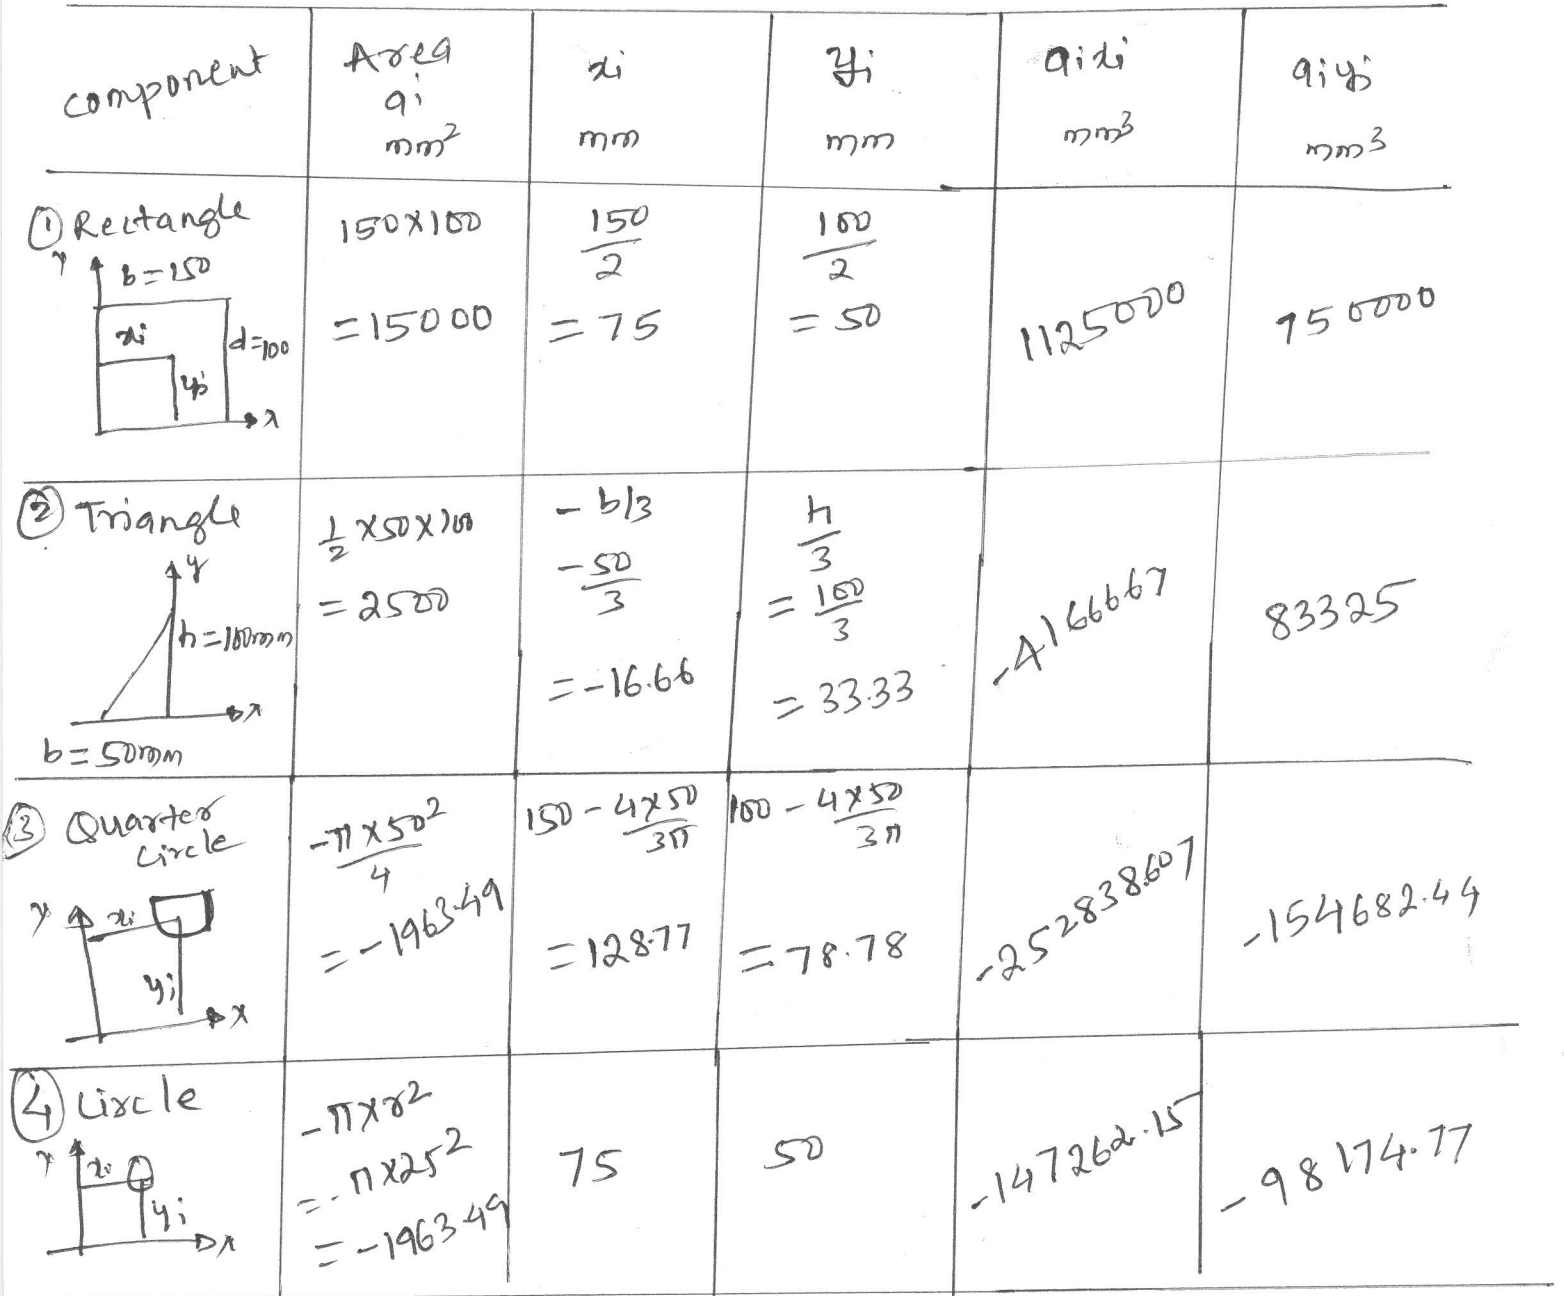 component
Area
ai
mm²
xi
mm
yi
mm
aixi
mm³
aiyi
mm³
① Rectangle
y
b=150
xi
d=100
yi
x
150×100
=15000
150
2
=75
100
2
=50
1125000
750000
② Triangle
y
h=100mm
x
b=50mm
1/2 ×50×100
=2500
-b/3
-50
3
=-16.66
h
3
=100
3
=33.33
-41666.67
83325
③ Quarter
circle
y
xi
yi
x
-π×50²
4
=-1963.49
150-4×50
3π
=128.77
100-4×50
3π
=78.78
-252838.607
-154682.44
④ circle
y
xi
yi
x
-π×r²
=-π×25²
=-1963.49
75
50
-147262.15
-98174.77